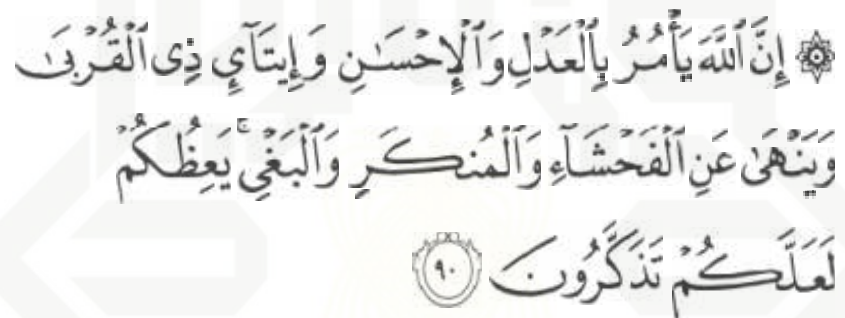 ۞ إِنَّ ٱللَّهَ يَأْمُرُ بِٱلْعَدْلِ وَٱلْإِحْسَٰنِ وَإِيتَآئِ ذِى ٱلْقُرْبَىٰ
وَيَنْهَىٰ عَنِ ٱلْفَحْشَآءِ وَٱلْمُنكَرِ وَٱلْبَغْىِ ۚ يَعِظُكُمْ
لَعَلَّكُمْ تَذَكَّرُونَ ٩٠